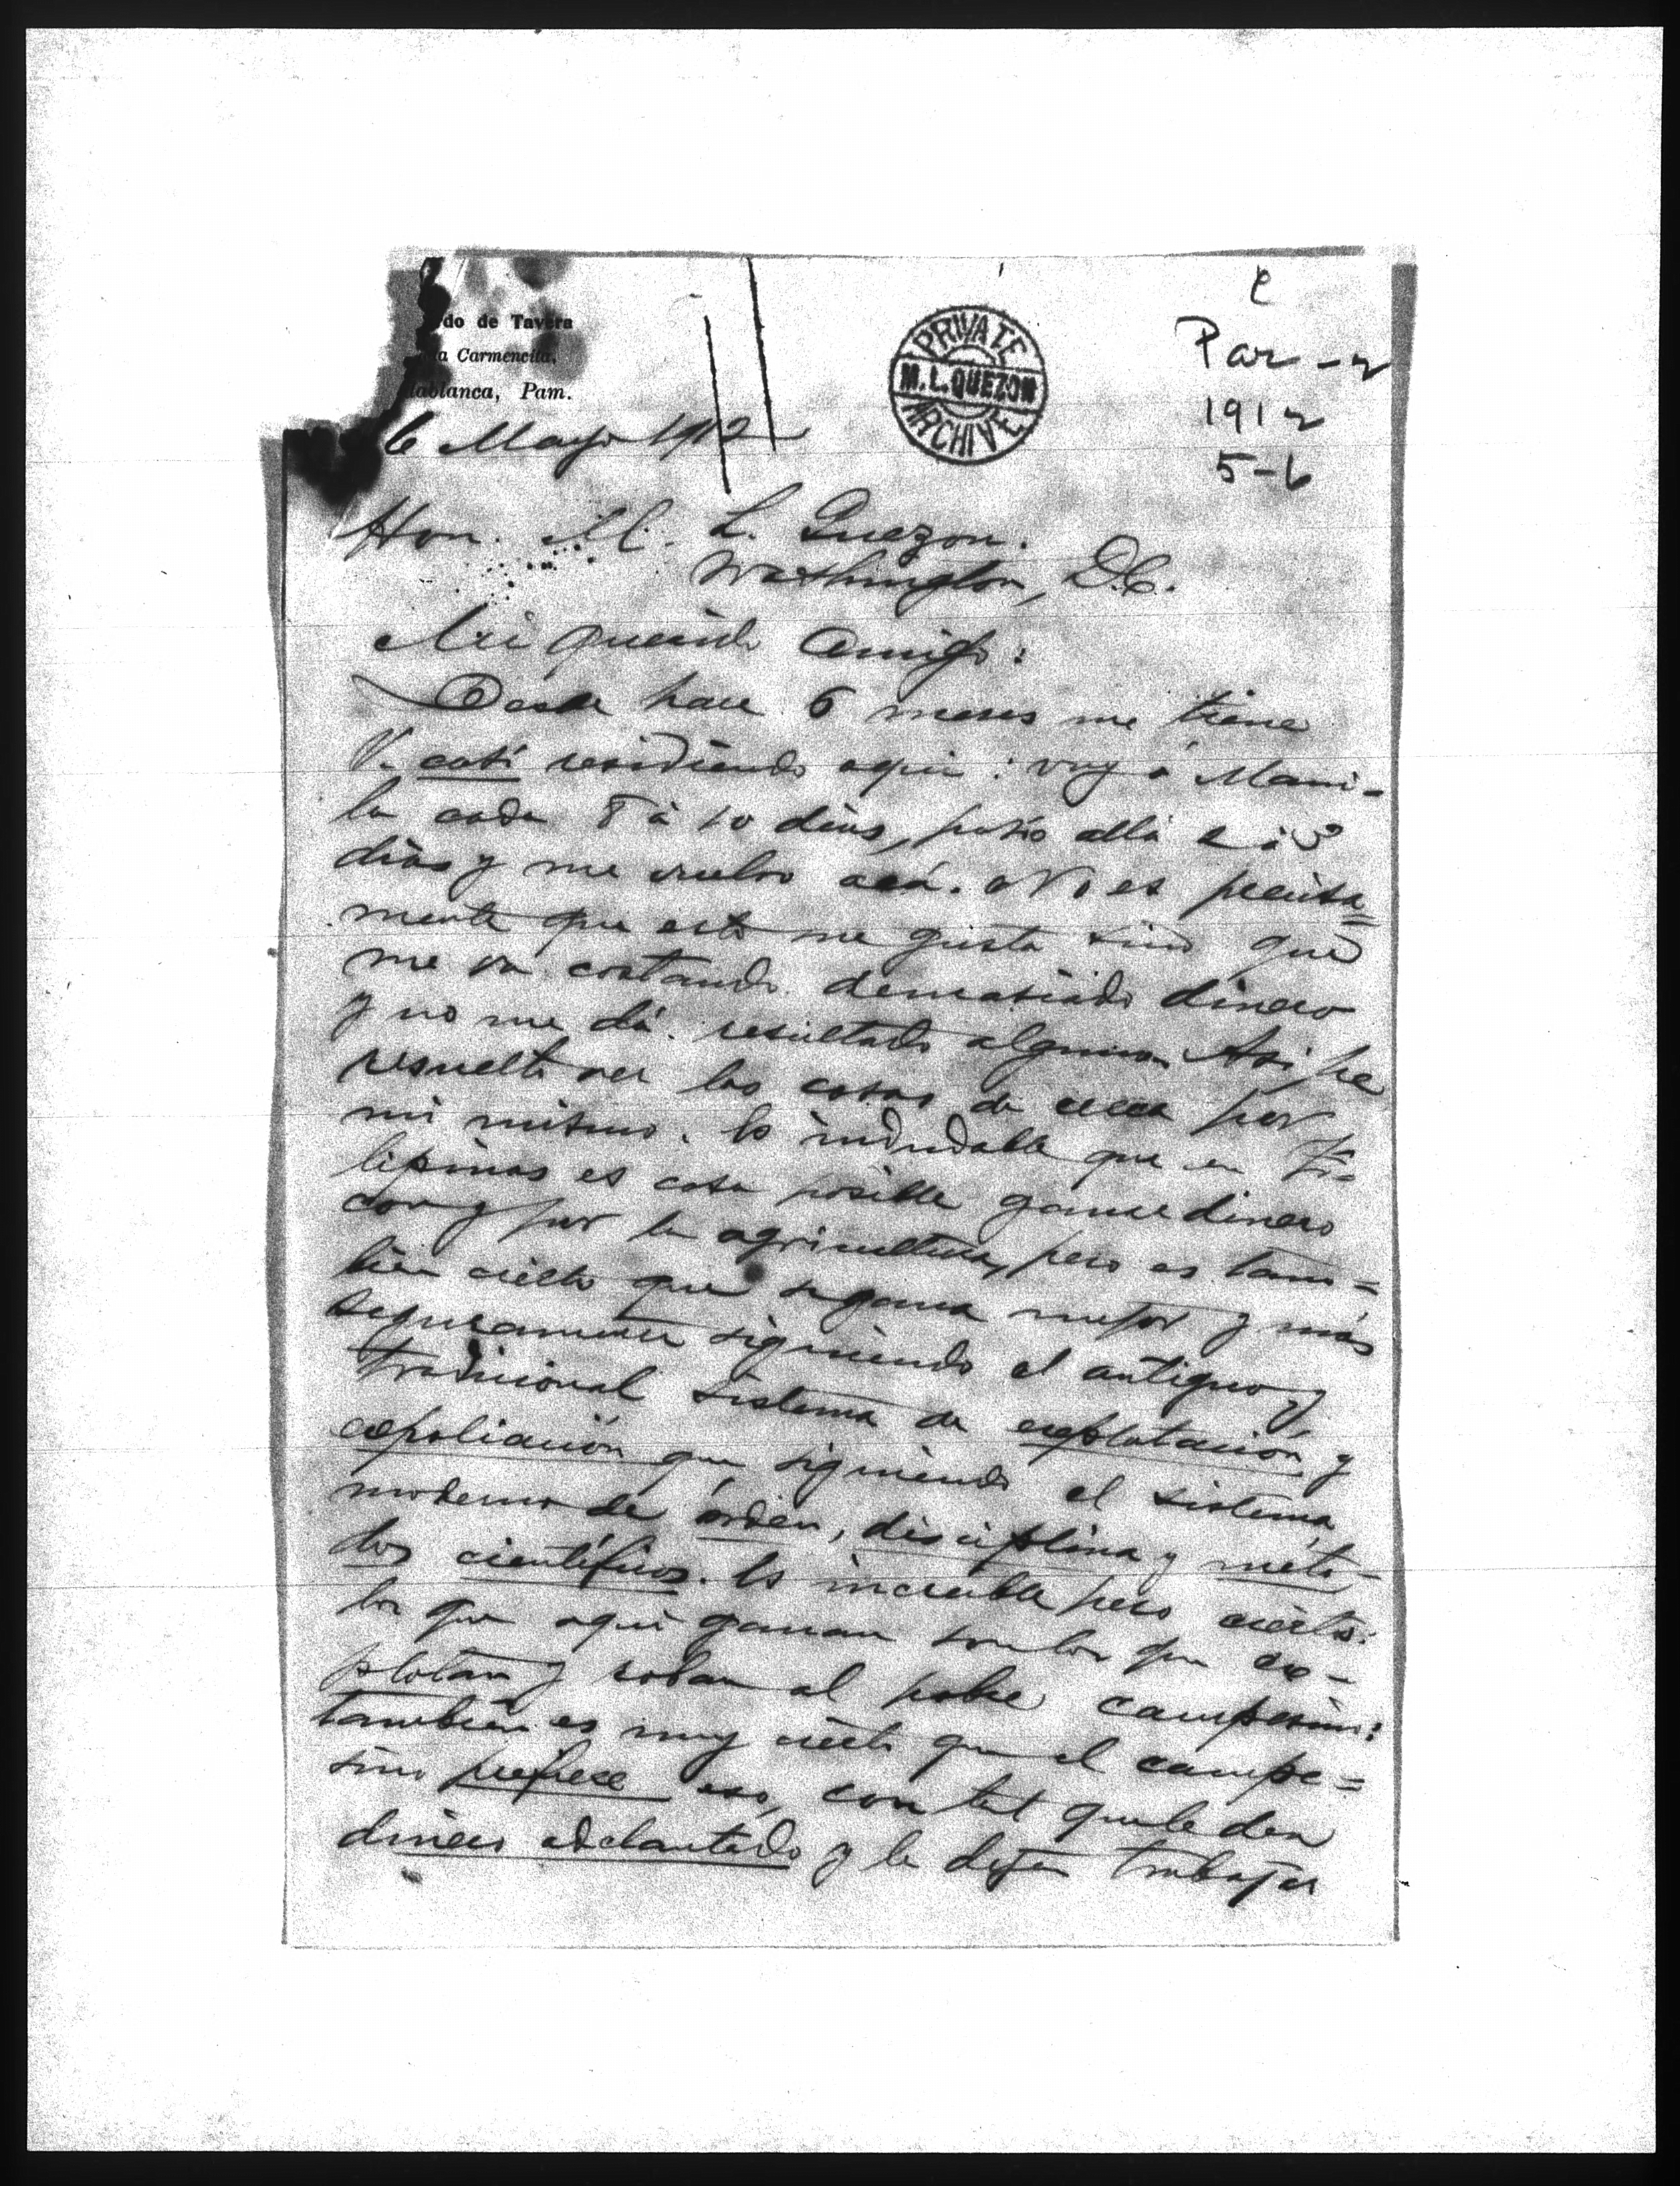 do de Tavera
a Carmencita,
lablanca, Pam.
PRIVATE
M. L. QUEZON
ARCHIVE
e
Par - 2
1912
5-6
6 Mayo 1912
Hon. M. L. Quezon.
Washington, D.C.
Mi querido amigo:
Desde hace 6 meses me tiene
V. casi residiendo aqui: voy á Mani-
la cada 8 á 10 dias, paso allá 2 ó 3
dias y me vuelvo acá. No es precisa=
mente que esto me gusta sino que
me va costando demasiado dinero
y no me dá resultado alguno. Asi he
resuelto ver las cosas de cerca por
mi mismo. Es indudable que en Fi=
lipinas es cosa posible ganar dinero
con y por la agricultura, pero es tam=
bien cierto que se gana mejor y más
seguramente siguiendo el antiguo y
tradicional sistema de explotación y
expoliación que siguiendo el sistema
moderno de orden, disciplina y méto-
dos científicos. Es increible pero cierto:
los que aqui ganan son los que ex-
plotan y roban al pobre campesino:
tambien es muy cierto que el campe=
sino prefiere eso, con tal que le den
dinero adelantado y le dejen trabajar